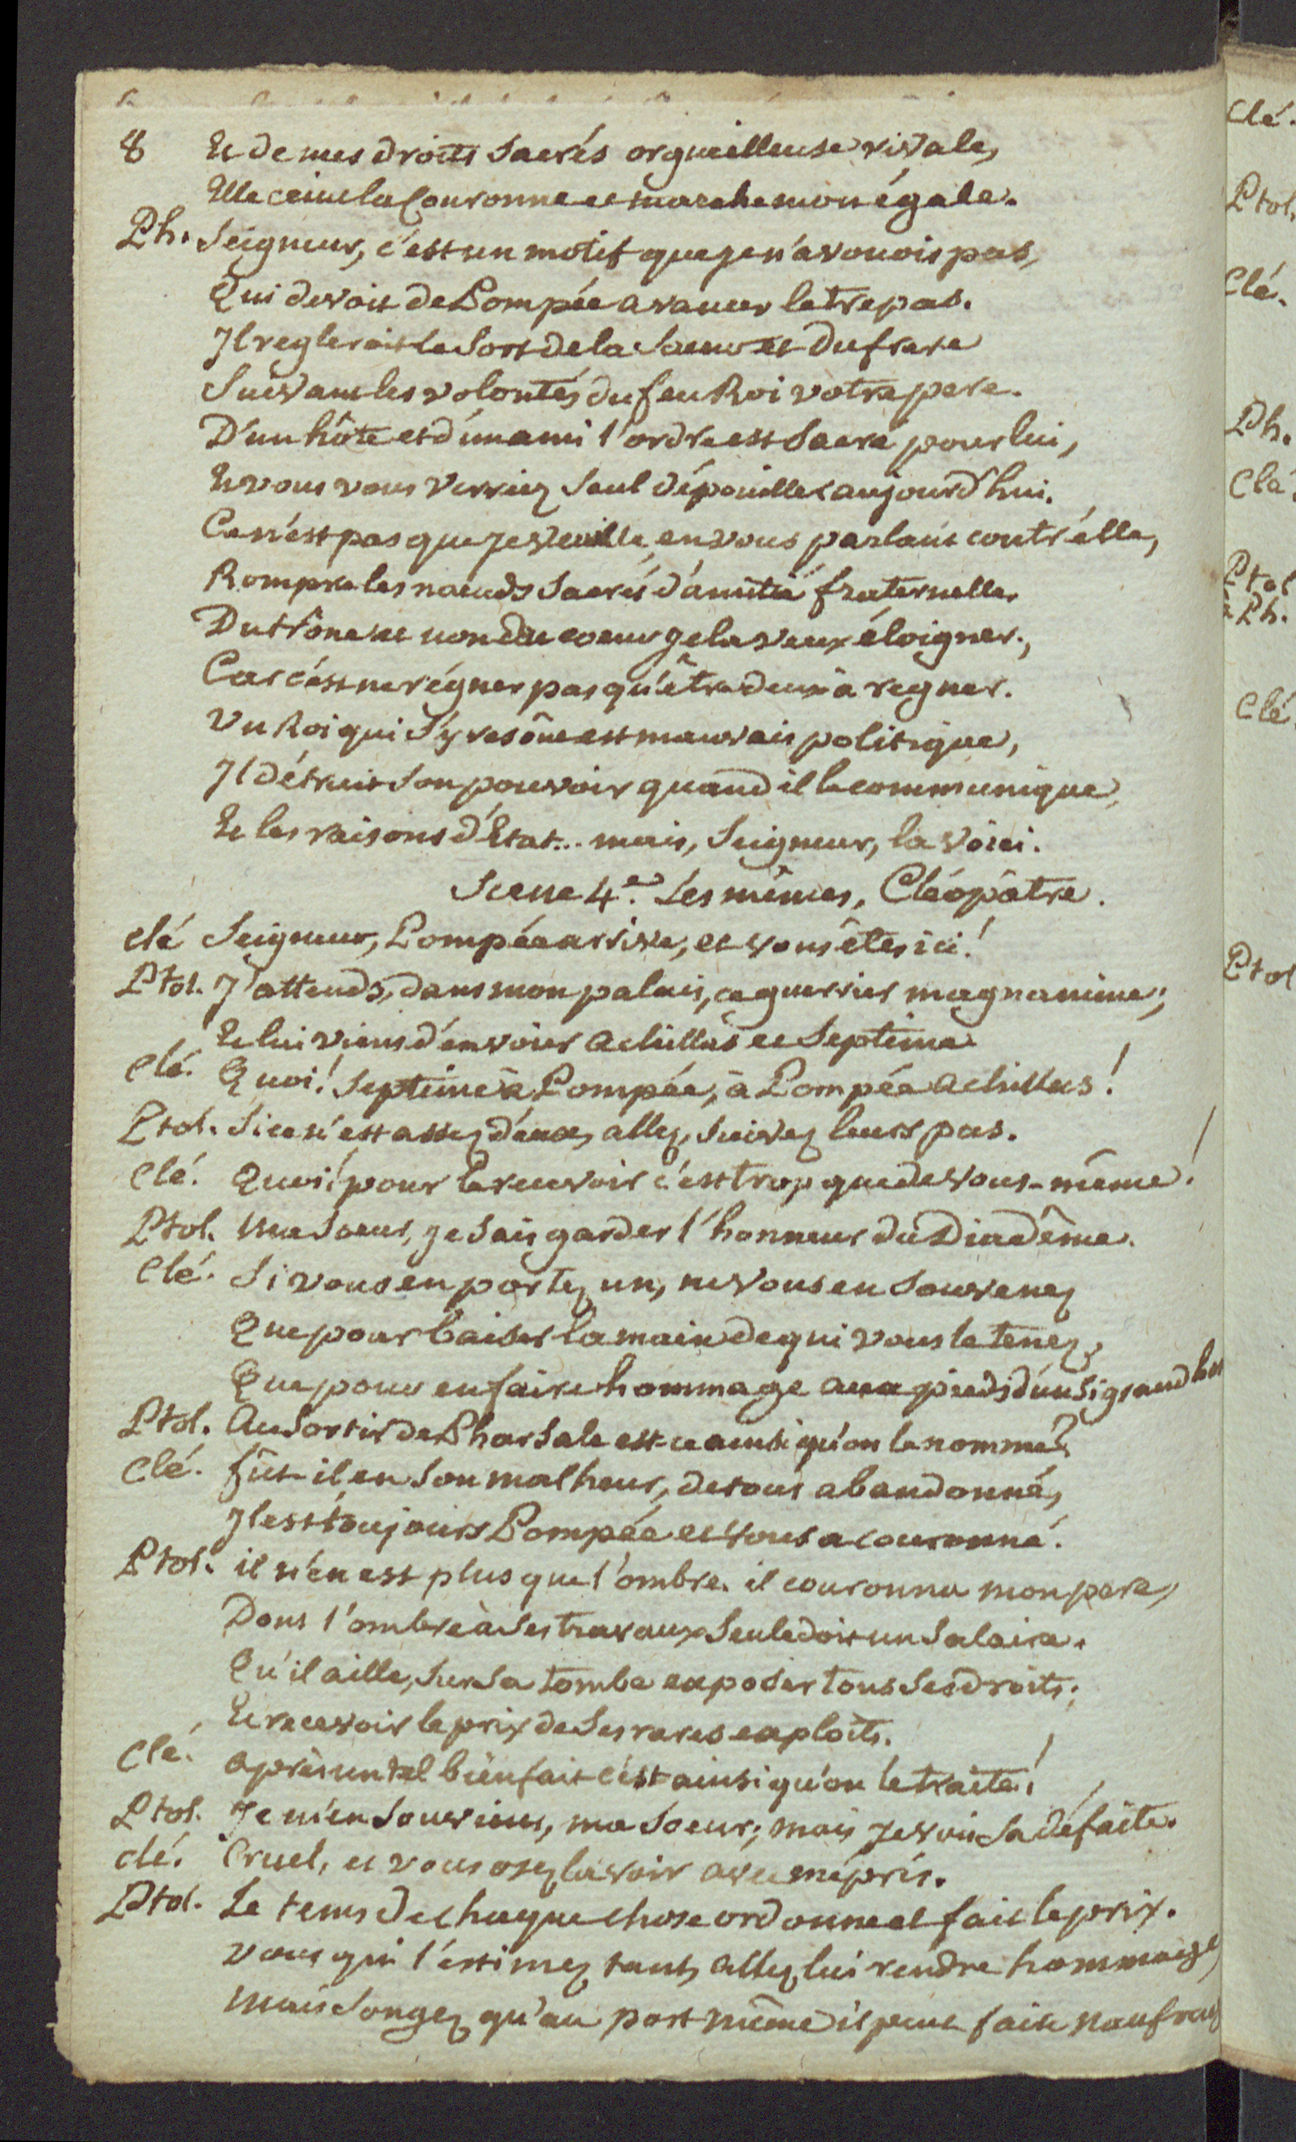 8 Et de mes droits sacrés orgueilleuse rivale,
Elle ceint la Couronne et marche mon égale.
Ph. Seigneur, c'est un motif que je n'avouois pas,
Qui devoit de Pompée avancer le trepas.
Il regleroit le sort de la soeur et du frere
Suivant les volontés du feu Roi votre pere.
D'un hôte et d'un ami l'ordre est sacré pour lui,
Et vous vous verriez seul dépouillé aujourd'hui.
Ce n'est pas que je veuille, en vous parlant contr'elle,
Rompre les noeuds sacrés d'amitié fraternelle.
Du trône et non du coeur je la veux éloigner.,
Car c'est ne régner pas qu'être deux à regner.
Un Roi qui s'y resôut est mauvais politique,
Il détruit son pouvoir quand il le communique,
Et les raisons d'Etat... mais, Seigneur, la voici.
Scene 4e. Les mêmes, Cléopâtre.
clé Seigneur, Pompée arrive, et vous êtes ici!
Ptol. J'attends, dans mon palais, ce guerrier magnanime;
Et lui viens d'envoier Achillas et Septime
Clé. Quoi! Septime à Pompée, à Pompée Achillas!
Ptol. Si ce n'est assez d'eux, allez, suivez leurs pas.
Clé. Quoi! pour le recevoir c'est trop que de vous-même!
Ptol. Ma Soeur, je sais garder l'honneur du Diadême.
Clé. Si vous en portez un, ne vous en souvenez
Que pour baiser la main de qui vous le tenez,
Que pour en faire hommage aux pieds d'un si grand
Ptol. Au sortir de Pharsale est ce ainsi qu'on le nomme?
Clé. fût-il, en son malheur, de tous abandonné,
Il est toujours Pompée et vous a couronné.
Ptol. il n'en est plus que l'ombre. il couronna mon pere,
Dont l'ombre à ses travaux seule doit un salaire.
Qu'il aille, sur sa tombe exposer tous ses droits;
Et recevoir le prix de ses rares exploits.
Clé. après un tel bienfait c'est ainsi qu'on le traite!
Ptol. Je m'en souviens, ma soeur; mais je vois sa défaite.
clé. Cruel, et vous osez la voir avec mépris.
Ptol. Le tems de chaque chose ordonne et fait le prix.
vous qui l'estimez tant, allez lui rendre hommage,
Mais songez qu'au port même il peut faire
Clé.
Ptol.
Clé.
Ph.
Clé.
Ptol
à Ph.
Clé
Ptol